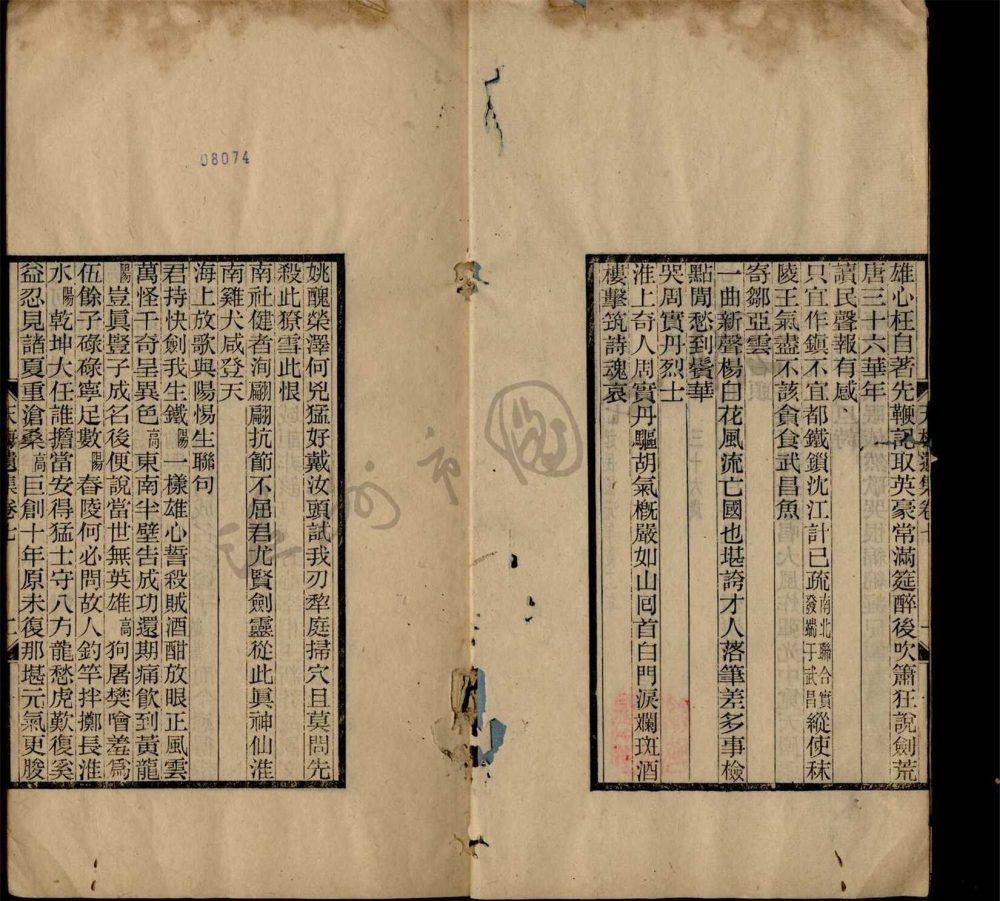 雄心枉自著先鞭記取英豪常滿筵醉後吹簫狂說劍荒
唐三十六華年
讀民聲報有感
只宜作鎭不宜都鐵鎖沈江計已疏南北聯合實發端于武昌縱使秣
陵王氣盡不該貪食武昌魚
寄鄒亞雲
一曲新聲楊白花風流亡國也堪誇才人落筆差多事檢
點閒愁到鬢華
哭周實丹烈士
淮上奇人周實丹驅胡氣槪嚴如山囘首白門淚斕斑酒
樓擊筑詩魂哀
天梅遺集卷七
姚醜榮澤何兇猛好戴汝頭試我刃犂庭掃穴且莫問先
殺此獠雪此恨
南社健者洵翩翩抗節不屈君尤賢劍靈從此眞神仙淮
南雞犬咸登天
海上放歌與陽惕生聯句
君持快劍我生鐵陽一樣雄心誓殺賊酒酣放眼正風雲
萬怪千奇呈異色高東南半壁告成功還期痛飮到黃龍
陽豈眞豎子成名後便說當世無英雄高狗屠樊噲羞爲
伍餘子碌碌寧足數陽舂陵何必問故人釣竿拌擲長淮
水陽乾坤大任誰擔當安得猛士守八方龍愁虎歎復奚
益忍見諸夏重滄桑高巨創十年原未復那堪元氣更朘
天梅遺集卷七
二
08074